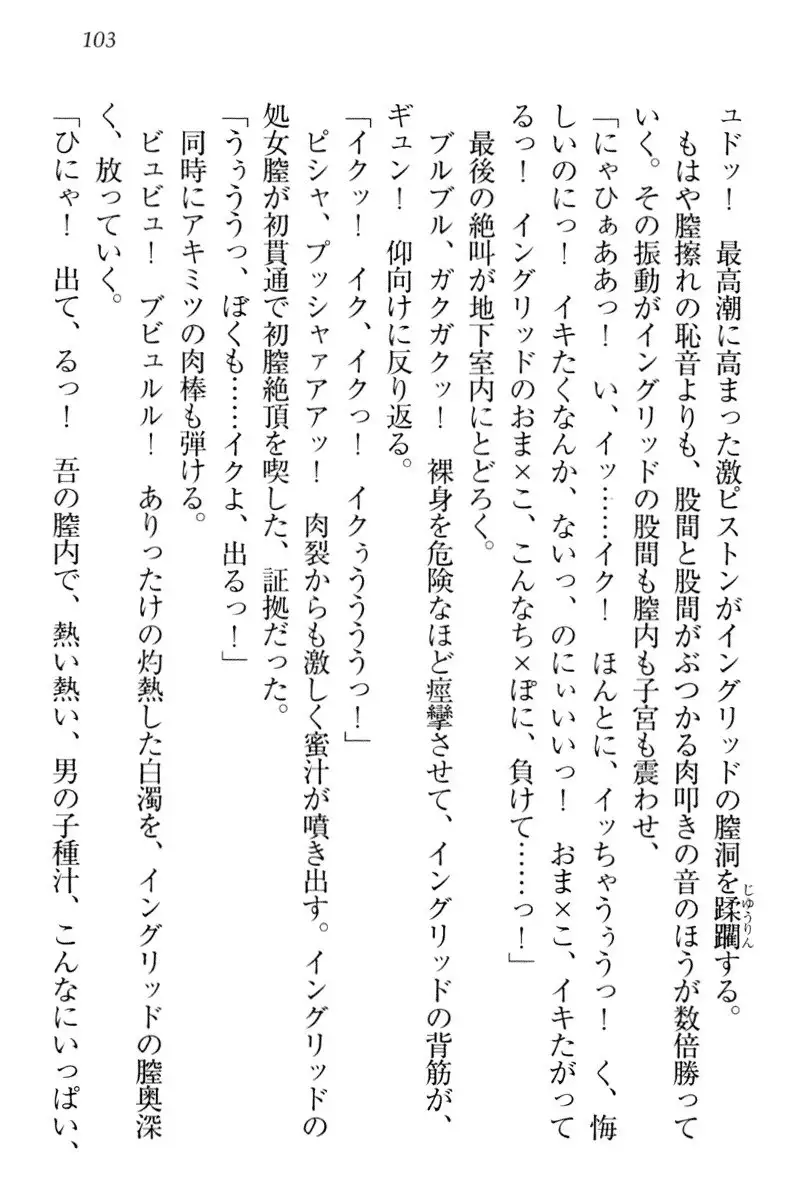 103
ュドッ!　最高潮に高まった激ピストンがイングリッドの膣洞を蹂躙する。
じゆうりん
もはや膣擦れの恥音よりも、股間と股間がぶつかる肉叩きの音のほうが数倍勝って
いく。その振動がイングリッドの股間も膣内も子宮も震わせ、
「にゃひぁああっ!　い、イッ……イク!　ほんとに、イッちゃうぅうっ!　く、悔
しいのにっ!　イキたくなんか、ないっ、のにぃいいっ!　おま×こ、イキたがって
るっ!　イングリッドのおま×こ、こんなち×ぽに、負けて……っ!」
最後の絶叫が地下室内にとどろく。
ブルブル、ガクガクッ!　裸身を危険なほど痙攣させて、イングリッドの背筋が、
ギュン!　仰向けに反り返る。
「イクッ!　イク、イクっ!　イクぅうううっ!」
ピシャ、プッシャァアアッ!　肉裂からも激しく蜜汁が噴き出す。イングリッドの
処女膣が初貫通で初膣絶頂を喫した、証拠だった。
「うぅううっ、ぼくも……イクよ、出るっ!」
同時にアキミツの肉棒も弾ける。
ビュビュ!　ブビュルル!　ありったけの灼熱した白濁を、イングリッドの膣奥深
く、放っていく。
「ひにゃ!　出て、るっ!　吾の膣内で、熱い熱い、男の子種汁、こんなにいっぱい、